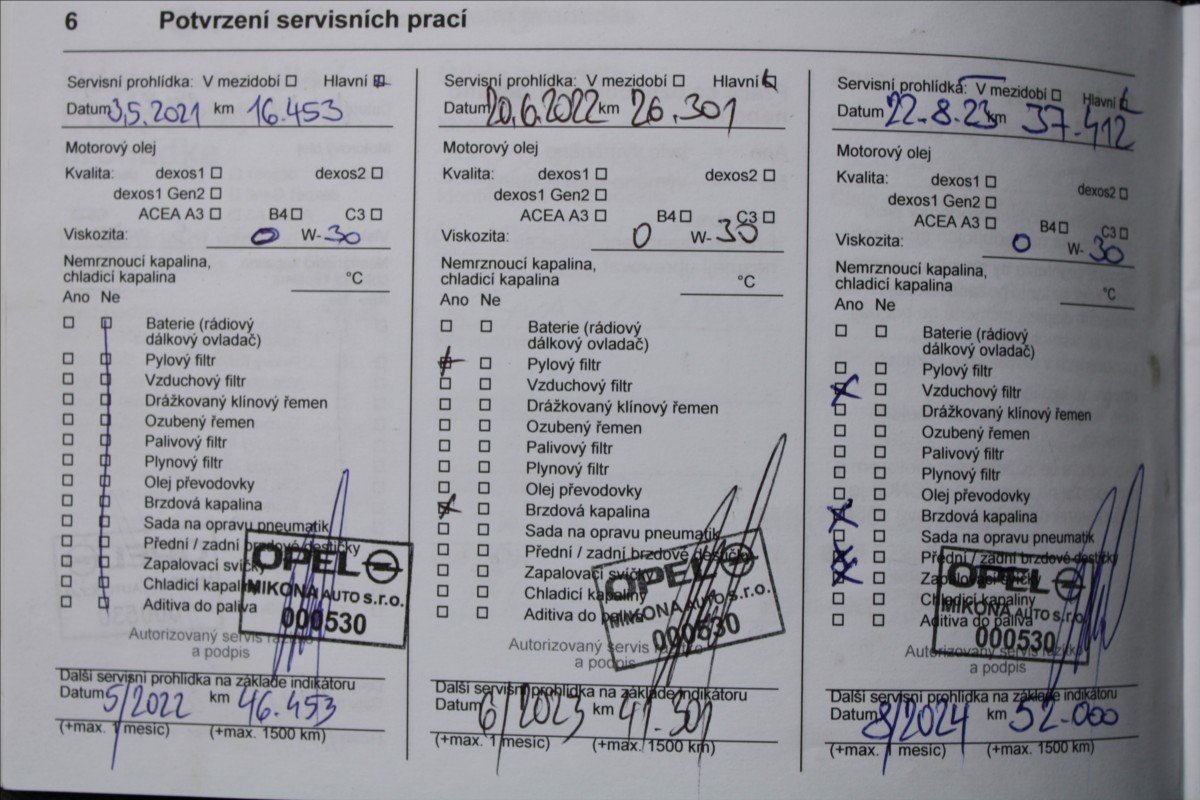 6 Potvrzení servisních prací
Servisní prohlídka: V mezidobí Hlavní
Datum 3.5.2021 km 16.453
Motorový olej
Kvalita: dexos1 dexos2
dexos1 Gen2
ACEA A3 B4 C3
Viskozita: 0 W- 30
Nemrznoucí kapalina,
chladicí kapalina °C
Ano Ne
Baterie (rádiový
dálkový ovladač)
Pylový filtr
Vzduchový filtr
Drážkovaný klínový řemen
Ozubený řemen
Palivový filtr
Plynový filtr
Olej převodovky
Brzdová kapalina
Sada na opravu pneumatik
Přední / zadní brzdové destičky
Zapalovací svíčky
Chladicí kapaliny
Aditiva do paliva
OPEL
MIKONA AUTO s.r.o.
000530
Autorizovaný servis razítko
a podpis
Další servisní prohlídka na základě indikátoru
Datum 5/2022 km 46.453
(+max. 1 měsíc) (+max. 1500 km)
Servisní prohlídka: V mezidobí Hlavní
Datum 20.6.2022 km 26.301
Motorový olej
Kvalita: dexos1 dexos2
dexos1 Gen2
ACEA A3 B4 C3
Viskozita: 0 W- 30
Nemrznoucí kapalina,
chladicí kapalina °C
Ano Ne
Baterie (rádiový
dálkový ovladač)
Pylový filtr
Vzduchový filtr
Drážkovaný klínový řemen
Ozubený řemen
Palivový filtr
Plynový filtr
Olej převodovky
Brzdová kapalina
Sada na opravu pneumatik
Přední / zadní brzdové destičky
Zapalovací svíčky
Chladicí kapaliny
Aditiva do paliva
OPEL
MIKONA AUTO s.r.o.
000530
Autorizovaný servis razítko
a podpis
Další servisní prohlídka na základě indikátoru
Datum 6/2023 km 41.301
(+max. 1 měsíc) (+max. 1500 km)
Servisní prohlídka: V mezidobí Hlavní
Datum 22.8.23 km 37.412
Motorový olej
Kvalita: dexos1 dexos2
dexos1 Gen2
ACEA A3 B4 C3
Viskozita: 0 W- 30
Nemrznoucí kapalina,
chladicí kapalina °C
Ano Ne
Baterie (rádiový
dálkový ovladač)
Pylový filtr
Vzduchový filtr
Drážkovaný klínový řemen
Ozubený řemen
Palivový filtr
Plynový filtr
Olej převodovky
Brzdová kapalina
Sada na opravu pneumatik
Přední / zadní brzdové destičky
Zapalovací svíčky
Chladicí kapaliny
Aditiva do paliva
OPEL
MIKONA AUTO s.r.o.
000530
Autorizovaný servis razítko
a podpis
Další servisní prohlídka na základě indikátoru
Datum 8/2024 km 52.000
(+max. 1 měsíc) (+max. 1500 km)